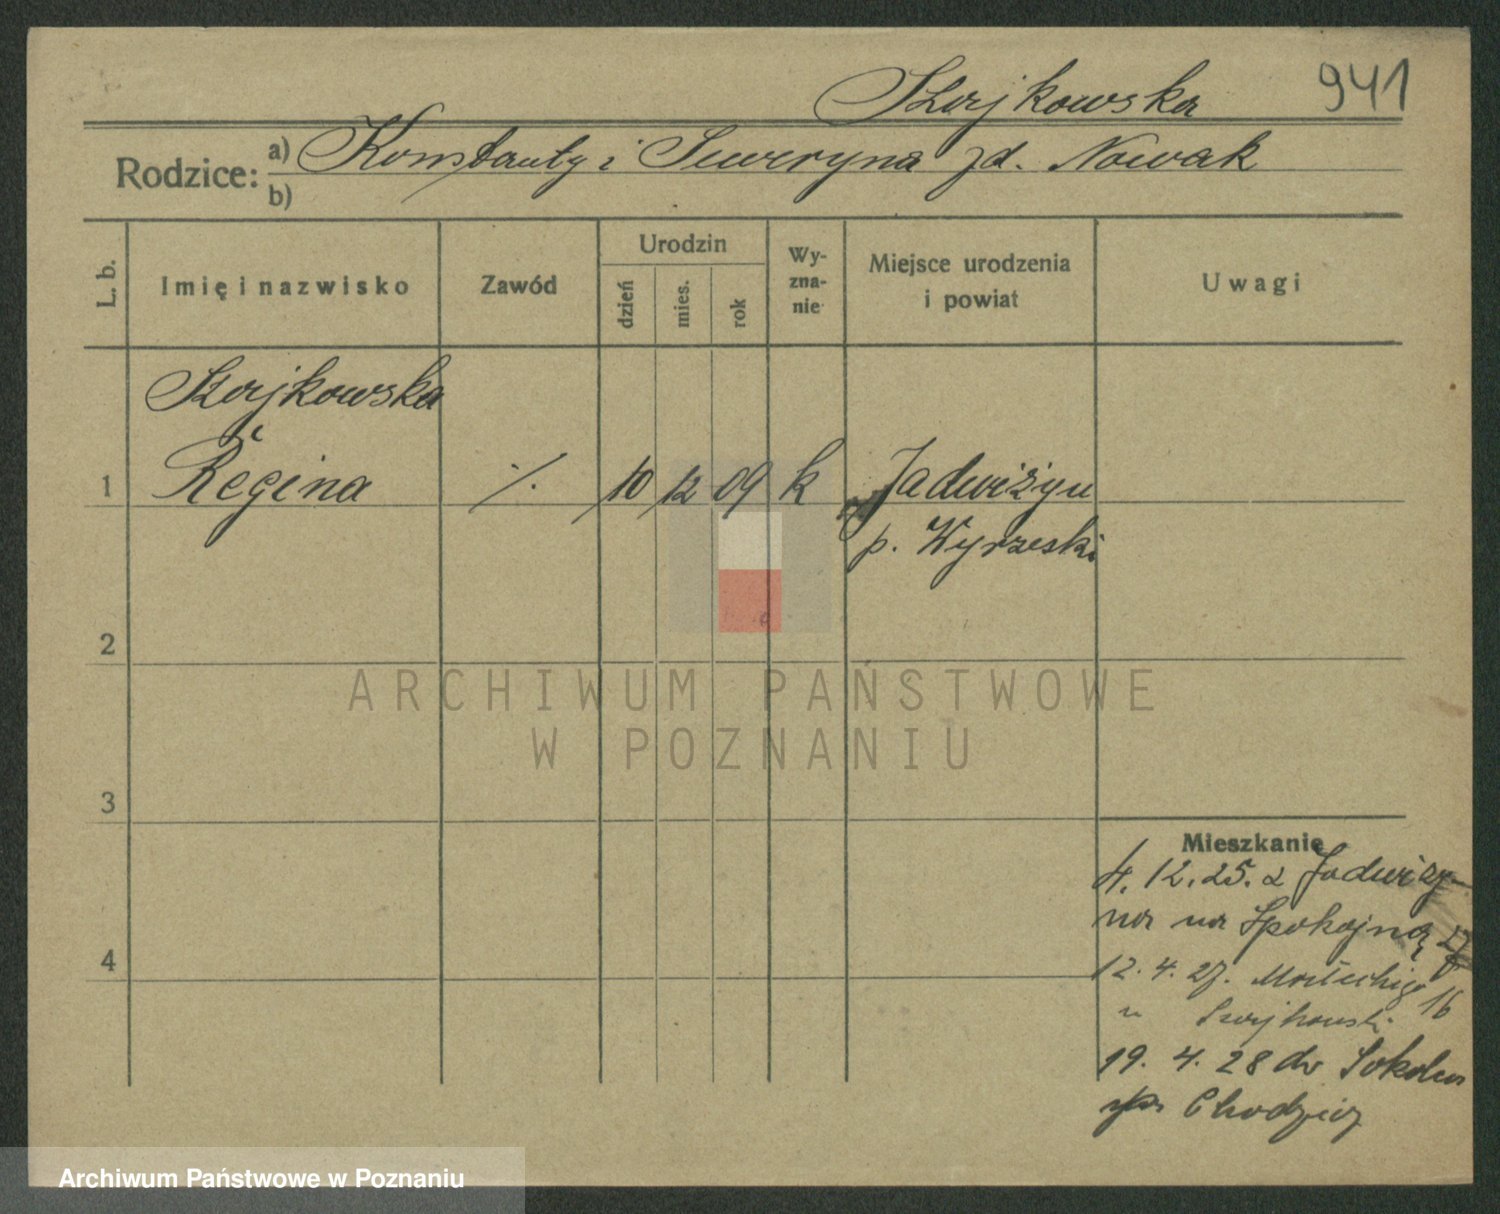 Szajkowska 941
Rodzice: a) Konstanty i Seweryna zd. Nowak
b)
L. b. Imię i nazwisko Zawód Urodzin dzień mies. rok Wyznanie Miejsce urodzenia i powiat Uwagi
Szajkowska
1 Regina ./. 10 12 09 k Jadwiżyn
p. Wyrzeski
2
ARCHIWUM PAŃSTWOWE
W POZNANIU
3
Mieszkanie
4. 12. 25. z Jadwiży-
na na Spokojną 27
4
12. 4. 27. 16
u Szajkowski
19. 4. 28 do
Chodzież
Archiwum Państwowe w Poznaniu